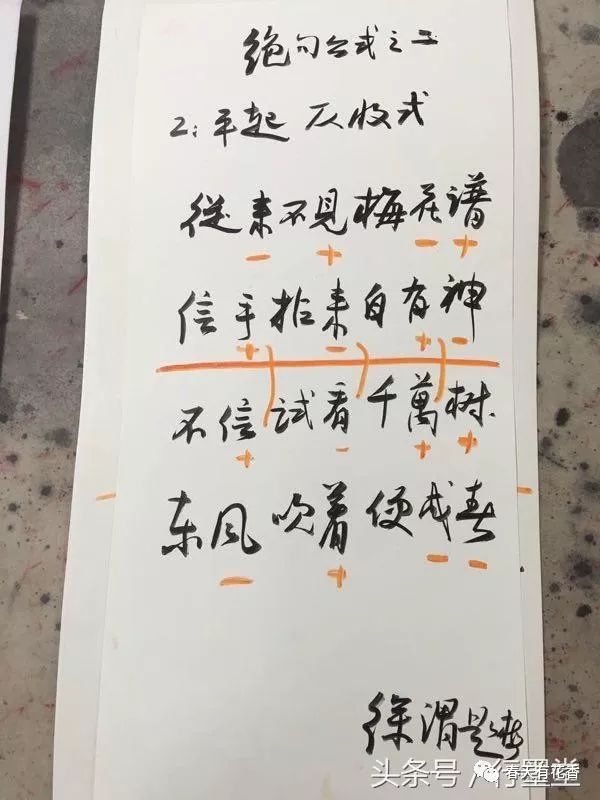 绝句公式之二
2:平起 仄收式
從来不見梅花谱
信手拈来自有神
不信試看千萬树
东风吹着便成春
徐渭题
头条号/行墨堂
春天有花香